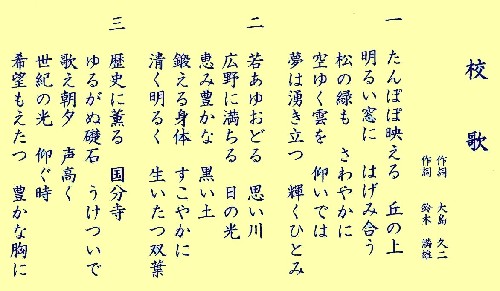 校歌
作詞 大島 久二
作詞 鈴木 満雄
一
たんぽぽ映える 丘の上
明るい窓に はげみ合う
松の緑も さわやかに
空ゆく雲を 仰いでは
夢は湧き立つ 輝くひとみ
二
若あゆおどる 思い川
広野に満ちる 日の光
恵み豊かな 黒い土
鍛える身体 すこやかに
清く明るく 生いたつ双葉
三
歴史に薫る 国分寺
ゆるがぬ礎石 うけついで
歌え朝夕 声高く
世紀の光 仰ぐ時
希望もえたつ 豊かな胸に